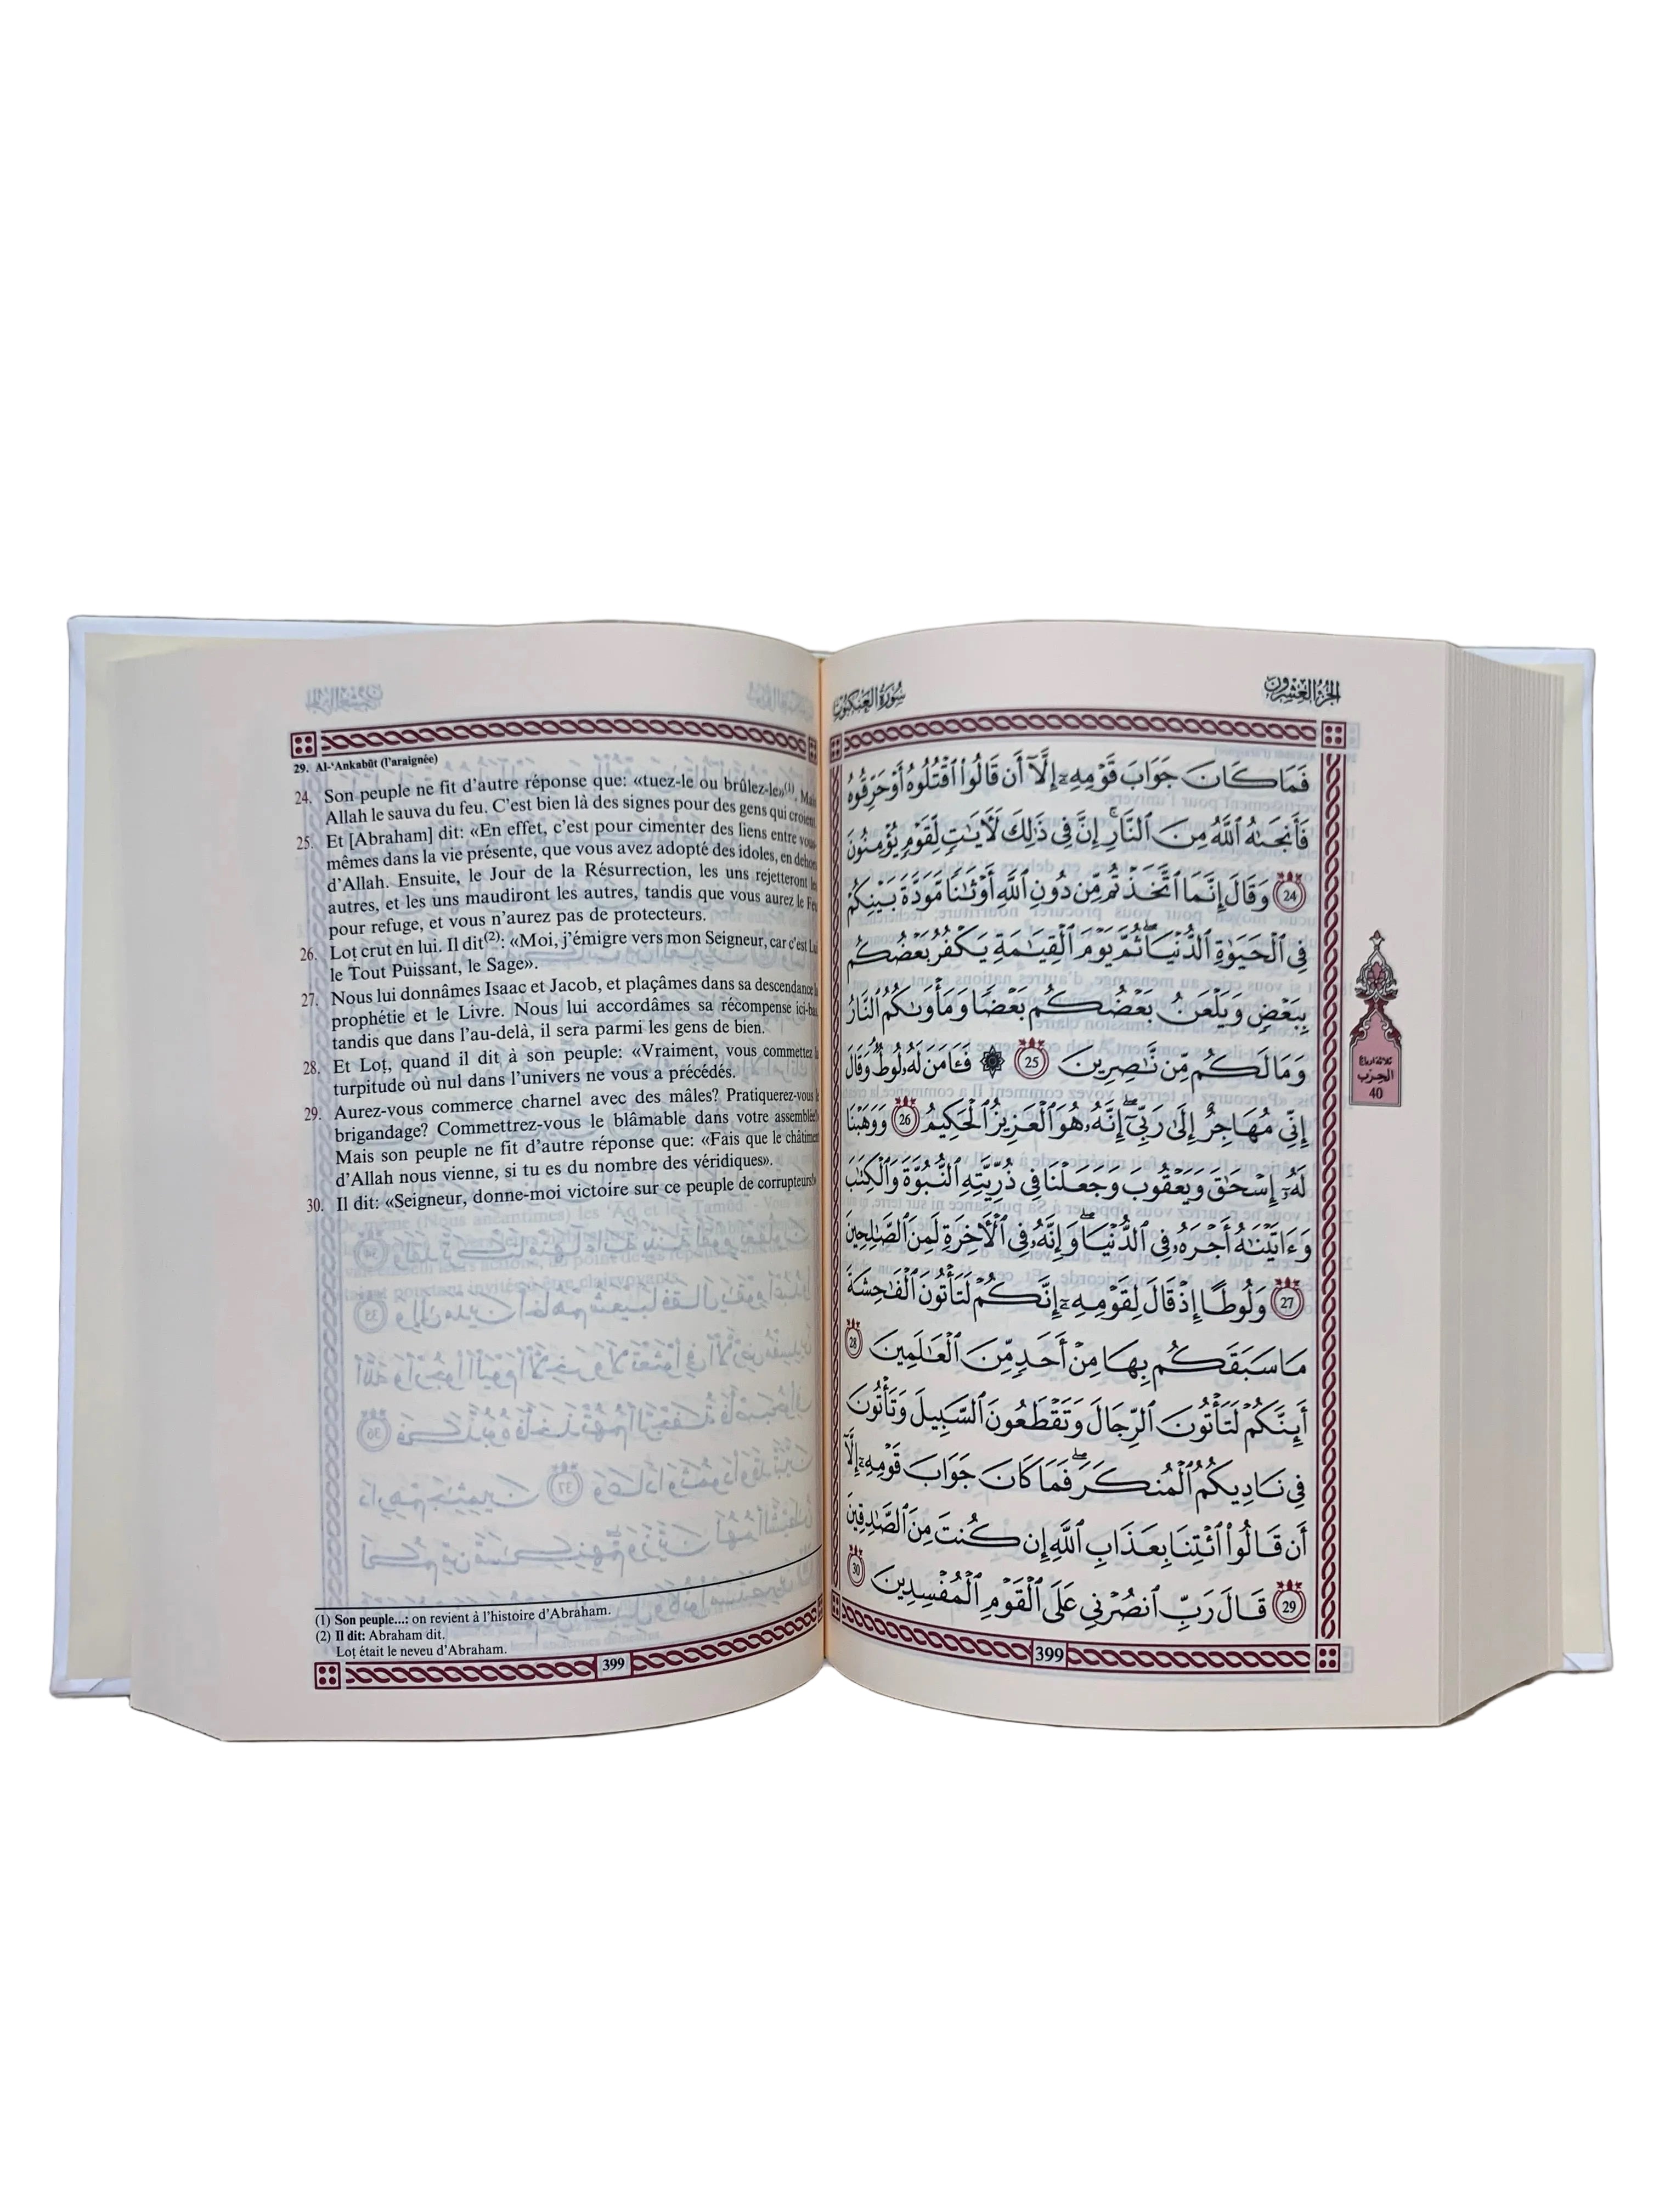 29. Al-‘Ankabût (l’araignée)
24. Son peuple ne fit d’autre réponse que: «tuez-le ou brûlez-le»(1). Mais
Allah le sauva du feu. C’est bien là des signes pour des gens qui croient.
25. Et [Abraham] dit: «En effet, c’est pour cimenter des liens entre vous-
mêmes dans la vie présente, que vous avez adopté des idoles, en dehors
d’Allah. Ensuite, le Jour de la Résurrection, les uns rejetteront les
autres, et les uns maudiront les autres, tandis que vous aurez le Feu
pour refuge, et vous n’aurez pas de protecteurs.
26. Loṭ crut en lui. Il dit(2): «Moi, j’émigre vers mon Seigneur, car c’est Lui
le Tout Puissant, le Sage».
27. Nous lui donnâmes Isaac et Jacob, et plaçâmes dans sa descendance
prophétie et le Livre. Nous lui accordâmes sa récompense ici-bas,
tandis que dans l’au-delà, il sera parmi les gens de bien.
28. Et Loṭ, quand il dit à son peuple: «Vraiment, vous commettez la
turpitude où nul dans l’univers ne vous a précédés.
29. Aurez-vous commerce charnel avec des mâles? Pratiquerez-vous le
brigandage? Commettrez-vous le blâmable dans votre assemblée?»
Mais son peuple ne fit d’autre réponse que: «Fais que le châtiment
d’Allah nous vienne, si tu es du nombre des véridiques».
30. Il dit: «Seigneur, donne-moi victoire sur ce peuple de corrupteurs!»
(1) Son peuple...: on revient à l’histoire d’Abraham.
(2) Il dit: Abraham dit.
Loṭ était le neveu d’Abraham.
399
الجزء العشرون
سورة العنكبوت
فَمَا كَانَ جَوَابَ قَوْمِهِۦٓ إِلَّآ أَن قَالُوا۟ ٱقْتُلُوهُ أَوْ حَرِّقُوهُ
فَأَنجَىٰهُ ٱللَّهُ مِنَ ٱلنَّارِ ۚ إِنَّ فِى ذَٰلِكَ لَـَٔايَـٰتٍ لِّقَوْمٍ يُؤْمِنُونَ
24 وَقَالَ إِنَّمَا ٱتَّخَذْتُم مِّن دُونِ ٱللَّهِ أَوْثَـٰنًا مَّوَدَّةَ بَيْنِكُمْ
فِى ٱلْحَيَوٰةِ ٱلدُّنْيَا ۖ ثُمَّ يَوْمَ ٱلْقِيَـٰمَةِ يَكْفُرُ بَعْضُكُم
بِبَعْضٍ وَيَلْعَنُ بَعْضُكُم بَعْضًا وَمَأْوَىٰكُمُ ٱلنَّارُ
وَمَا لَكُم مِّن نَّـٰصِرِينَ 25 ۞ فَـَٔامَنَ لَهُۥ لُوطٌ ۘ وَقَالَ
إِنِّى مُهَاجِرٌ إِلَىٰ رَبِّىٓ ۖ إِنَّهُۥ هُوَ ٱلْعَزِيزُ ٱلْحَكِيمُ 26 وَوَهَبْنَا
لَهُۥٓ إِسْحَـٰقَ وَيَعْقُوبَ وَجَعَلْنَا فِى ذُرِّيَّتِهِ ٱلنُّبُوَّةَ وَٱلْكِتَـٰبَ
وَءَاتَيْنَـٰهُ أَجْرَهُۥ فِى ٱلدُّنْيَا ۖ وَإِنَّهُۥ فِى ٱلْـَٔاخِرَةِ لَمِنَ ٱلصَّـٰلِحِينَ
27 وَلُوطًا إِذْ قَالَ لِقَوْمِهِۦٓ إِنَّكُمْ لَتَأْتُونَ ٱلْفَـٰحِشَةَ
مَا سَبَقَكُم بِهَا مِنْ أَحَدٍ مِّنَ ٱلْعَـٰلَمِينَ 28
أَئِنَّكُمْ لَتَأْتُونَ ٱلرِّجَالَ وَتَقْطَعُونَ ٱلسَّبِيلَ وَتَأْتُونَ
فِى نَادِيكُمُ ٱلْمُنكَرَ ۖ فَمَا كَانَ جَوَابَ قَوْمِهِۦٓ إِلَّآ
أَن قَالُوا۟ ٱئْتِنَا بِعَذَابِ ٱللَّهِ إِن كُنتَ مِنَ ٱلصَّـٰدِقِينَ
29 قَالَ رَبِّ ٱنصُرْنِى عَلَى ٱلْقَوْمِ ٱلْمُفْسِدِينَ 30
ثلاثة أرباع
الحزب
40
399